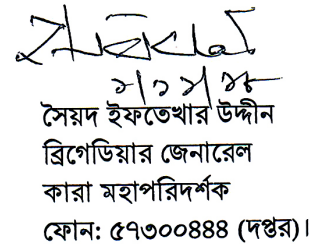 সৈয়দ ইফতেখার উদ্দীন
ব্রিগেডিয়ার জেনারেল
কারা মহাপরিদর্শক
ফোন: ৫৭৩০০৪৪৪ (দপ্তর)।